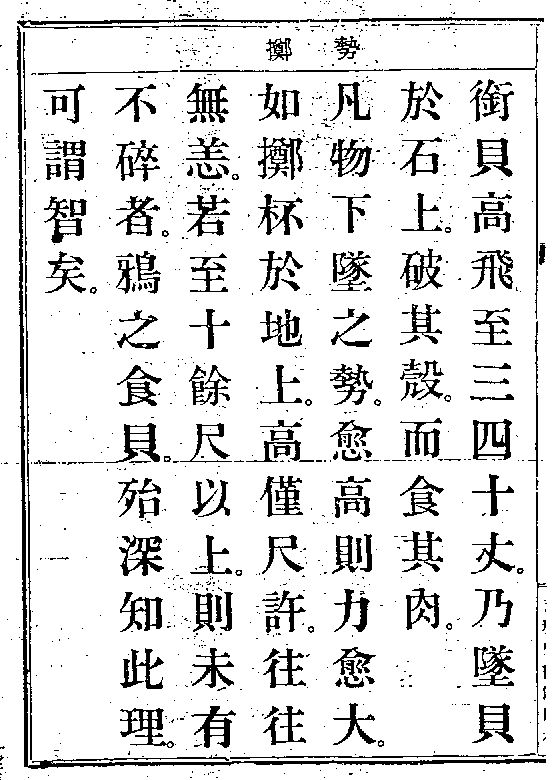 勢 擲
銜貝高飛至三四十丈。乃墜貝
於石上。破其殼。而食其肉。
凡物下墜之勢。愈高則力愈大。
如擲杯於地上。高僅尺許。往往
無恙。若至十餘尺以上。則未有
不碎者。鴉之食貝。殆深知此理。
可謂智矣。